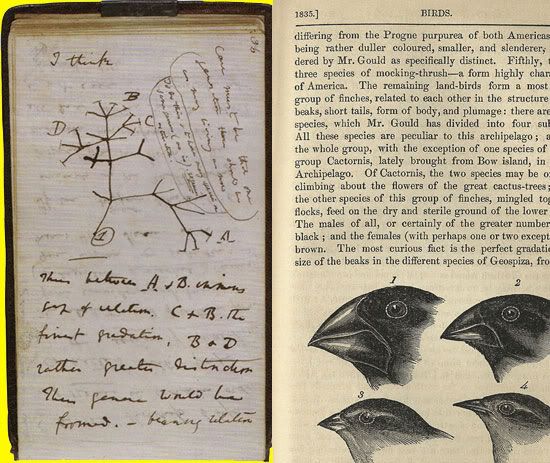 I think
36
Case must be that one
generation then should be
as many living as now
To do this & to have many species in
same genus (as is) requires
extinction
B
C
D
A
1
Thus between A & B. immense
gap of relation. C & B. the
finest gradation, B & D
rather greater distinction
Thus genera would be
formed. — bearing relation
1835.] BIRDS.
differing from the Progne purpurea of both Americas
being rather duller coloured, smaller, and slenderer,
dered by Mr. Gould as specifically distinct. Fifthly,
three species of mocking-thrush—a form highly char
of America. The remaining land-birds form a most
group of finches, related to each other in the structure
beaks, short tails, form of body, and plumage: there are
species, which Mr. Gould has divided into four sub
All these species are peculiar to this archipelago; a
the whole group, with the exception of one species of
group Cactornis, lately brought from Bow island, in
Archipelago. Of Cactornis, the two species may be of
climbing about the flowers of the great cactus-trees;
the other species of this group of finches, mingled tog
flocks, feed on the dry and sterile ground of the lower
The males of all, or certainly of the greater number
black; and the females (with perhaps one or two except
brown. The most curious fact is the perfect gradati
size of the beaks in the different species of Geospiza, fro
1
2
3
4